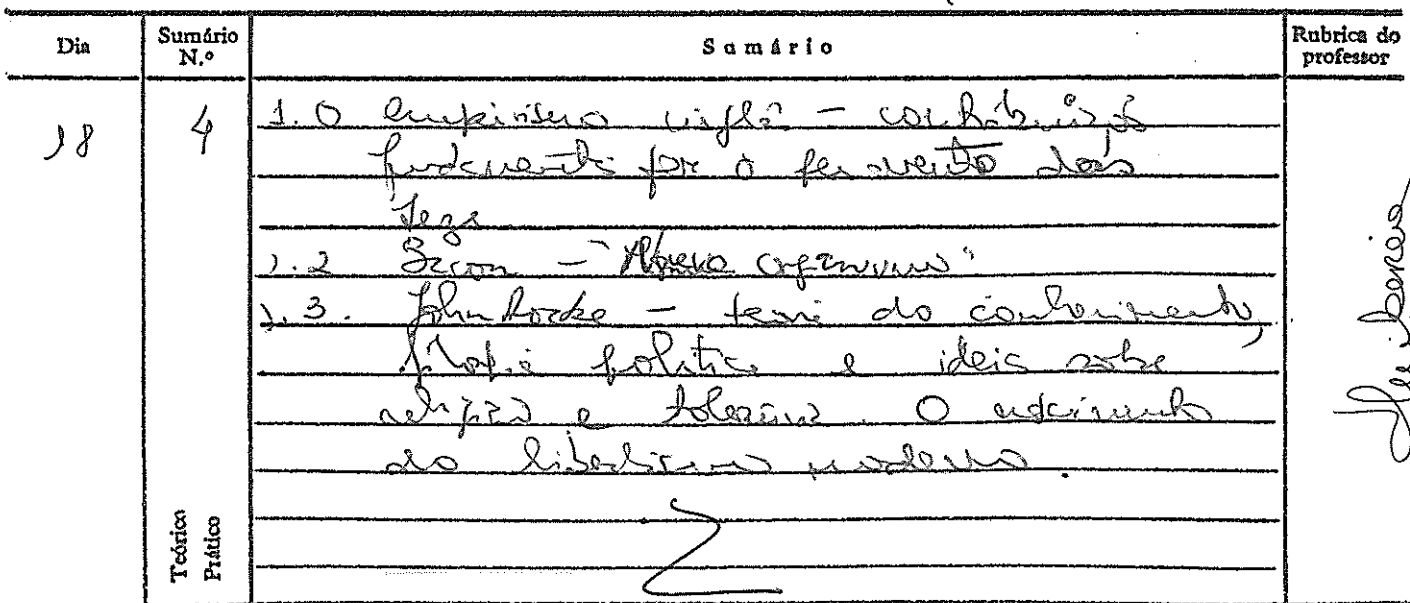 Dia
Sumário N.º
Sumário
Rubrica do professor
18
4
1. O empirismo inglês - contribuição
fundamental para o pensamento das
1.2 Bacon - "Novum organum"
1.3. John Locke - teoria do conhecimento,
filosofia política e ideias sobre
religião e tolerância. O nascimento
do liberalismo moderno.
Teórico
Prático